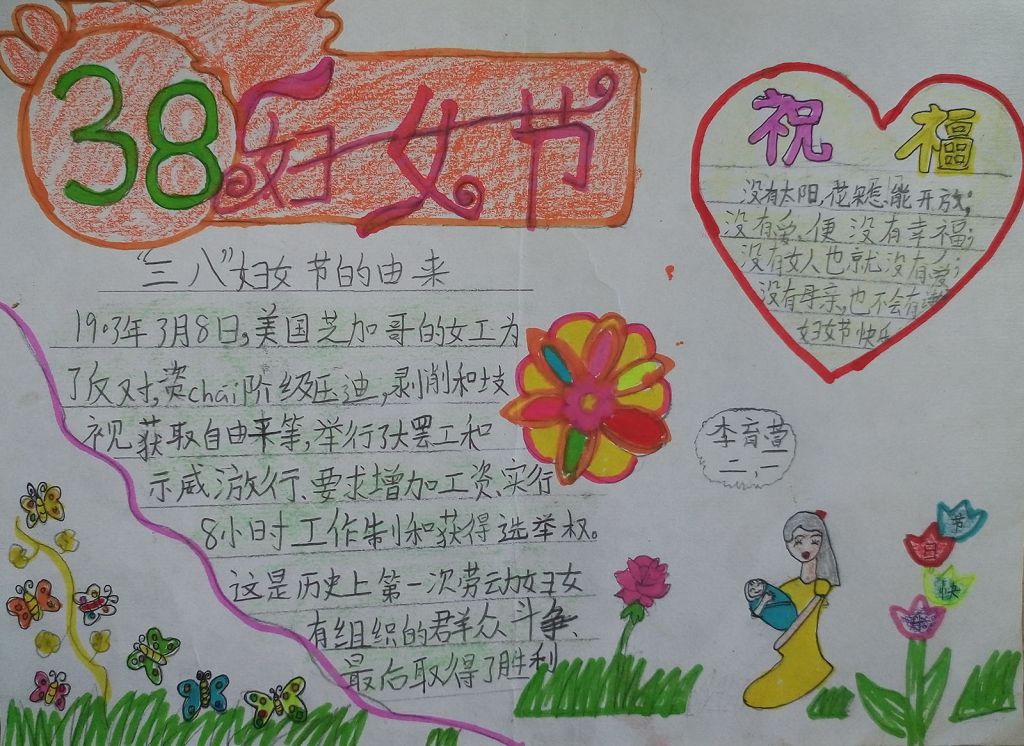 38妇女节
"三八"妇女节的由来
1903年3月8日,美国芝加哥的女工为
了反对,资chai阶级压迪,剥削和歧
视获取自由来等,举行了大罢工和
示威游行、要求增加工资、实行
8小时工作制和获得选举权。
这是历史上第一次劳动妇女
有组织的群众斗争、
最后取得了胜利
祝福
没有太阳,花朵怎能开放;
没有爱,便没有幸福;
没有女人也就没有爱;
没有母亲,也不会有
妇女节快乐
李育萱
二,一
节
日
快
乐